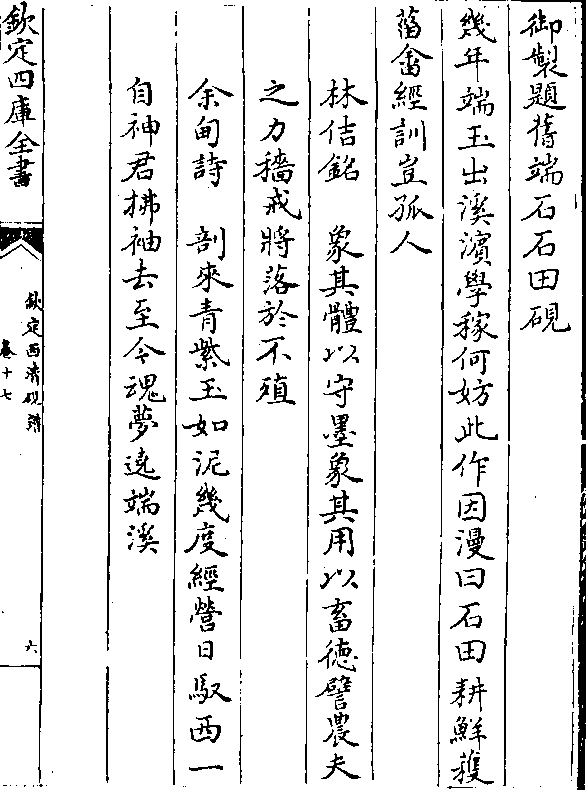 御製題舊端石石田硯
幾年端玉出溪濱學稼何妨此作因漫曰石田耕鮮穫
菑畬經訓豈孤人
林佶銘　象其體以守墨象其用以畜徳譬農夫
之力穡戒將落於不殖
余甸詩　剖來青紫玉如泥幾度經營日馭西一
自神君拂袖去至今魂夢遶端溪
欽定四庫全書
欽定西清硯譜
卷十七
六